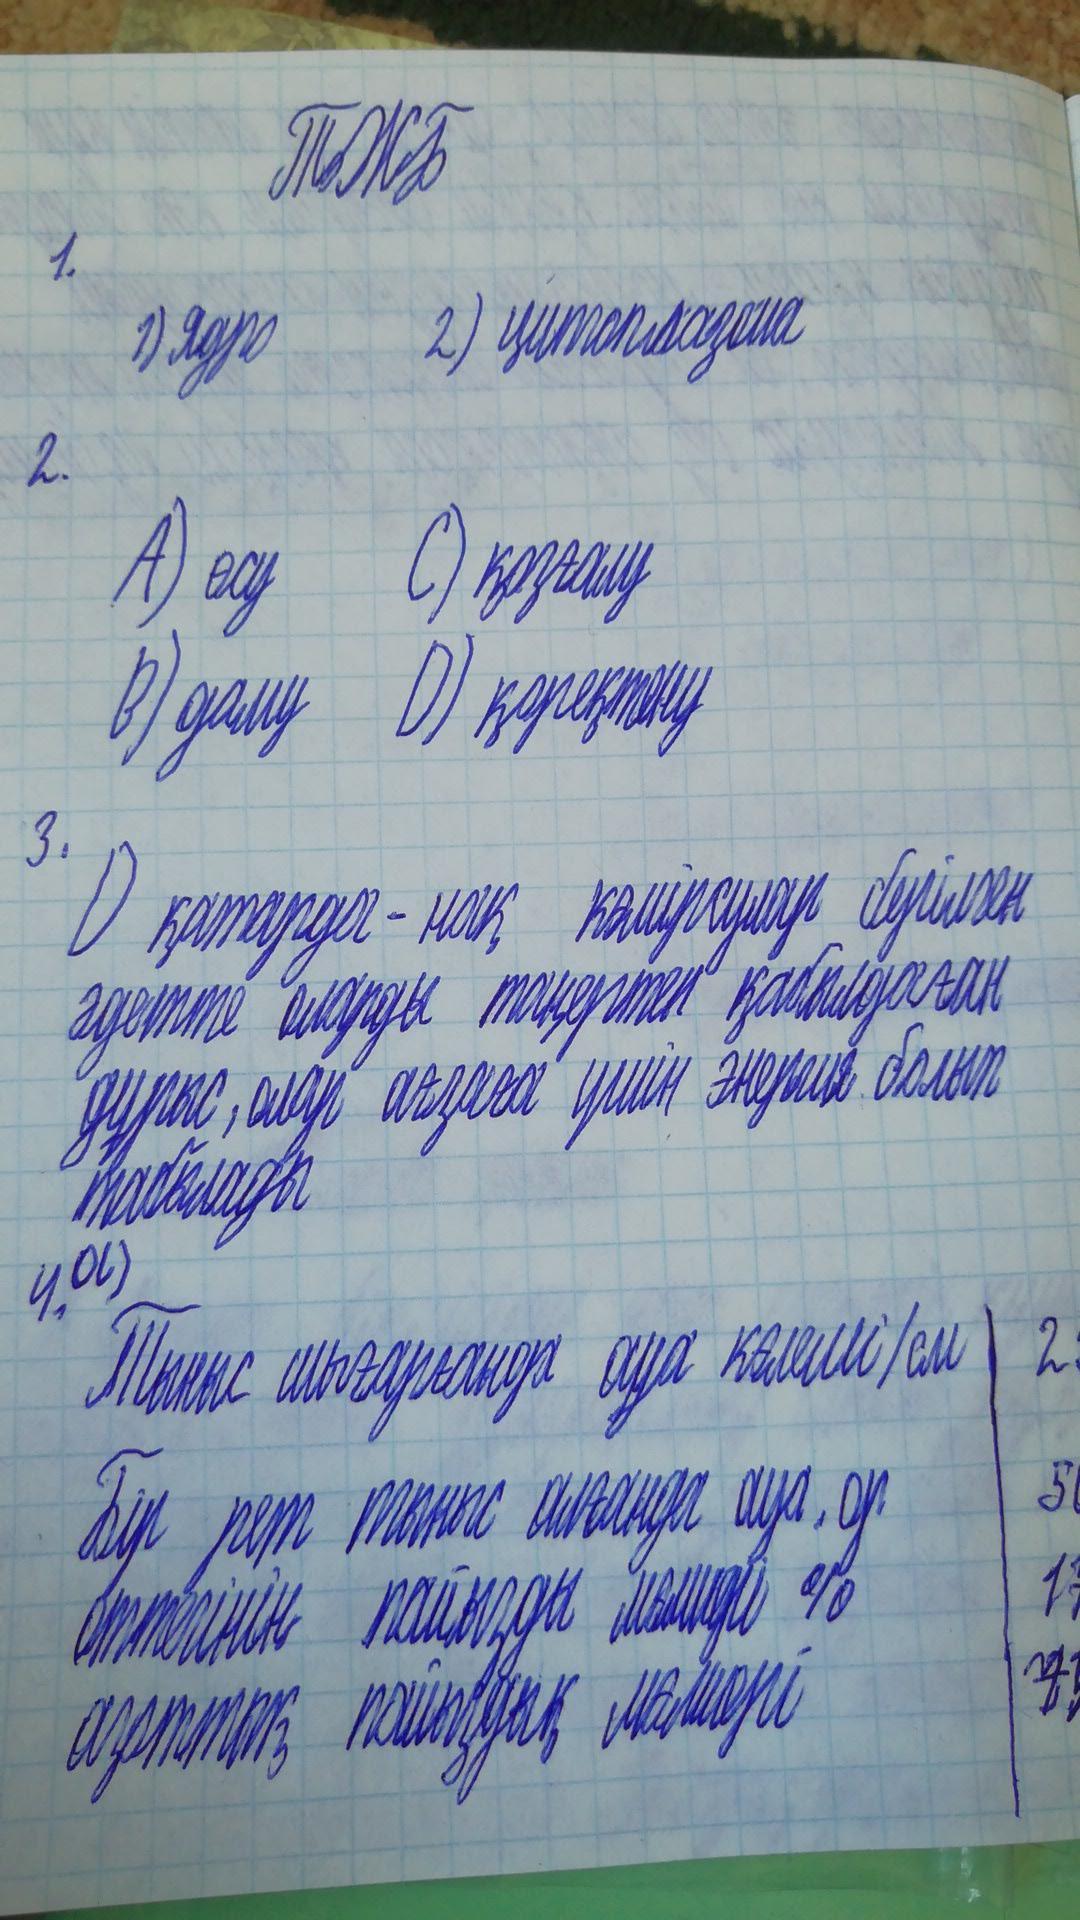 ТЖБ
1.
1) Ядро 2) цитоплазма
2.
А) өсу С) қозғалу
В) даму D) қоректену
3.
D қатарда - нақ көмірсулар берілген
әдетте оларды таңертең қабылдаған
дұрыс, олар ағзаға үшін энергия болып
табылады
4. а)
Тыныс шығарғанда ауа көлемі/см 2
Бір рет тыныс алғанда ауа. ор. 50
оттегінің пайызды мөлшері % 17
азоттың пайыздық мөлшері